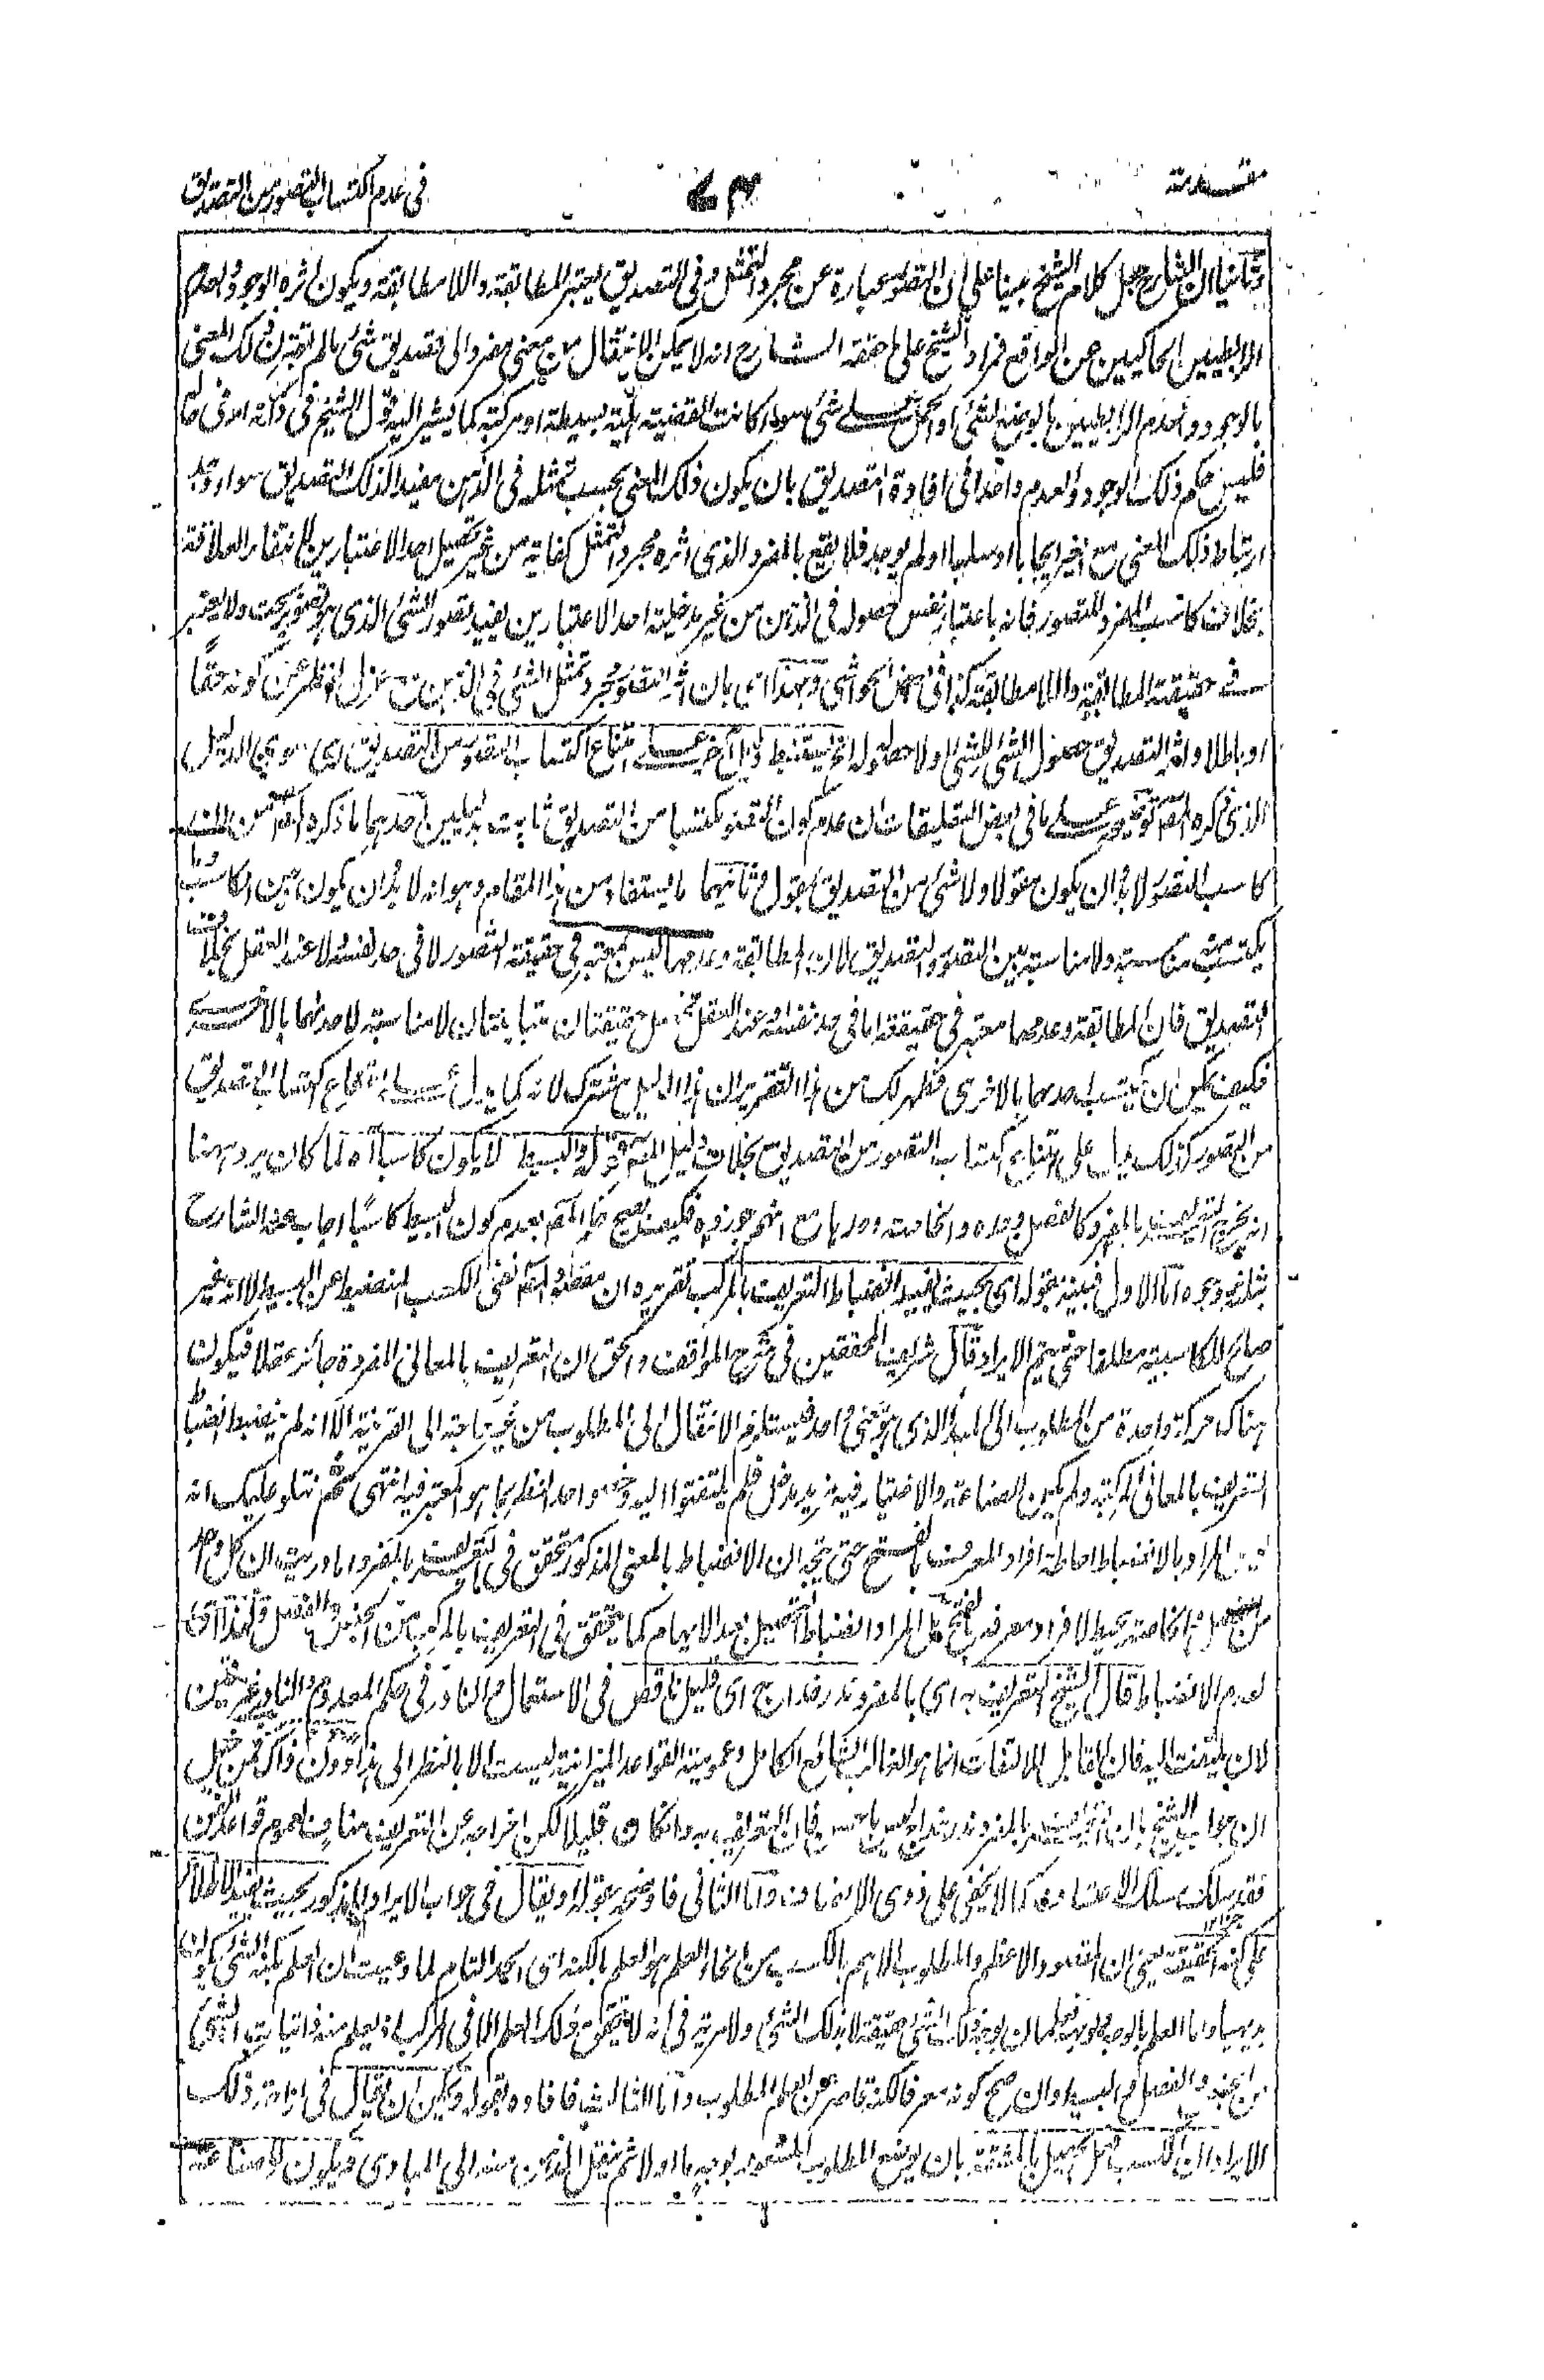 مقدمة
٧٣
فى عدم اكتساب التصور من التصديق
وثانيا ان الشارح جعل كلام الشيخ مبنيا على ان التصور عبارة عن مجرد التمثل وفى التصديق يعتبر المطابقة واللامطابقة ويكون اثره الوجود والعدم
الرابطيين الحاكيين عن الواقع فمراد الشيخ على ما حققه الشارح انه لا يمكن الانتقال من معنى مفرد الى تصديق شئ ما لم تقترن ذلك المعنى
بالوجود والعدم الرابطيين بالوجود لشئ او الحمل على شئ سواء كانت القضية هلية بسيطة او مركبة كما يشير اليه قول الشيخ فى ذاته او فى حاله
فليس حكم ذلك الوجود والعدم واحدا فى افادة التصديق بان يكون ذلك المعنى بحسب تمثله فى الذهن مفيدا لذلك التصديق سواء وجد
ارتباط ذلك المعنى مع اخر ايجابا او سلبا او لم يوجد فلا يقع بالمفرد الذى اثره مجرد التمثل كفاية من غير تحصيل احد الاعتبارين لانتفاء العلاقة
بخلاف كاسب المفرد المتصور فانه باعتبار نفس حصوله فى الذهن من غير مدخلية احد الاعتبارين يفيد تصور الشئ الذى هو تصور بحت ولا يعتبر
فى حقيقته المطابقة واللامطابقة كذا فى بعض الحواشى وبهذا اى بان اثر التصور مجرد تمثل الشئ فى الذهن مع عزل النظر عن كونه حقا
او باطلا واثر التصديق حصول الشئ للشئ ولا حصوله له يستنبط دليل آخر على امتناع اكتساب التصور من التصديق اى سوى الدليل
الذى ذكره المصنف توضيحه على ما فى بعض التعليقات ان عدم كون التصور مكتسبا من التصديق ثابت بدليلين احدهما ما ذكره المصنف من ان
كاسب التصور لا بد ان يكون مقولا ولا شئ من التصديق بمقول وثانيهما ما يستفاد من هذا المقام وهو انه لا بد ان يكون بين الكاسب
والمكتسب مناسبة ولا مناسبة بين التصور والتصديق لان المطابقة وعدمها ليس بمعتبر فى حقيقة التصور لا فى حد نفسه ولا عند العقل بخلاف
التصديق فان المطابقة وعدمها معتبر فى حقيقته اما فى حد نفسه او عند العقل حقيقتان متباينتان لا مناسبة لاحدهما بالاخرى
فكيف يمكن ان يكتسب احدهما بالاخرى فظهر لك من هذا التقرير ان هذا الدليل مشترك لانه كما يدل على امتناع اكتساب التصديق
من التصور كذلك يدل على امتناع اكتساب التصور من التصديق بخلاف دليل المصنف قوله والبسيط لا يكون كاسبا آه لما كان يرد ههنا
انه يخرج التعريف بالمفرد كالفصل وحده والخاصة وحدها مع انهم جوزوه فكيف يصح حكم المصنف بعدم كون البسيط كاسبا اجاب عنه الشارح
بثلثة وجوه اما الاول فبينه بقوله اى بحيث يفيد انضباط التعريف بالمركب تقريره ان مقصود المصنف نفى الكسب المنضبط عن البسيط لا انه غير
صالح للكاسبية مطلقا حتى يتم الايراد قال شريف المحققين فى شرح المواقف والحق ان التعريف بالمعانى المفردة جائز عقلا فيكون
هناك حركة واحدة من المطلوب الى المبدأ الذى هو معنى واحد فيستلزم الانتقال الى المطلوب من غير حاجة الى القرينة الا انه لم ينضبط انضباط
التعريف بالمعانى المركبة ولم يكن للصناعة والاختيار فيه مزيد مدخل فلم يلتفتوا اليه وخصوا حد النظر بما هو المعتبر فيه انتهى ثم نتلو عليك انه
ليس المراد بالانضباط احاطة افراد المعرف بالفتح حتى يتجه ان الانضباط بالمعنى المذكور متحقق فى التعريف بالمفرد اما دريت ان كل واحد
من الفصل والخاصة محيط لافراد معرفه بالفتح بل المراد انضباط التحصيل بعد الابهام كما يتحقق فى التعريف بالمركب من الجنس والفصل ولهذا اى
لعدم الانضباط قال الشيخ التعريف به اى بالمفرد نزر خداج اى قليل ناقص فى الاستعمال والنادر فى حكم المعدوم والناقص غير قمين
لان يلتفت اليه فان القابل للالتفات انما هو الغالب الشائع الكامل وعمومية القواعد الميزانية ليست الا بالنظر الى هذا دون ذاك فمن خيل
ان جواب الشيخ بان التعريف بالمفرد نزر خداج ليس بتام فان التعريف به وان كان قليلا لكن اخراجه عن التعريف مناف لعموم قواعد الفن
فقد سلك مسلك الاعتساف كما لا يخفى على ذوى الانصاف واما الثانى فاوضحه بقوله او يقال فى جواب الايراد المذكور بحيث يفيد الاطلاع
على كنه الحقيقة يعنى ان المقصود الاعظم والمطلوب الاهم بالكسب من انحاء العلم هو العلم بالكنه اى الحد التام لما دعيت ان العلم بكنه الشئ يكون
بديهيا واما العلم بالوجه وبوجهه فعلمان بوجه ذلك الشئ حقيقة لا بذلك الشئ ولا مرية فى انه لا يتحقق ذلك العلم الا فى المركب اذ يعلم منه ذاتيات الشئ
من الجنس والفصل فالبسيط وان صح كونه معرفا لكنه قاصر عن العلم المطلوب واما الثالث فافاده بقوله ويمكن ان يقال فى ازاحة ذلك
الايراد ان الكسب تحصيل بالمشقة بان يوضع المطلوب المشعور بوجه ما اولا ثم ينتقل الذهن منه الى المبادى ويكون للصناعة